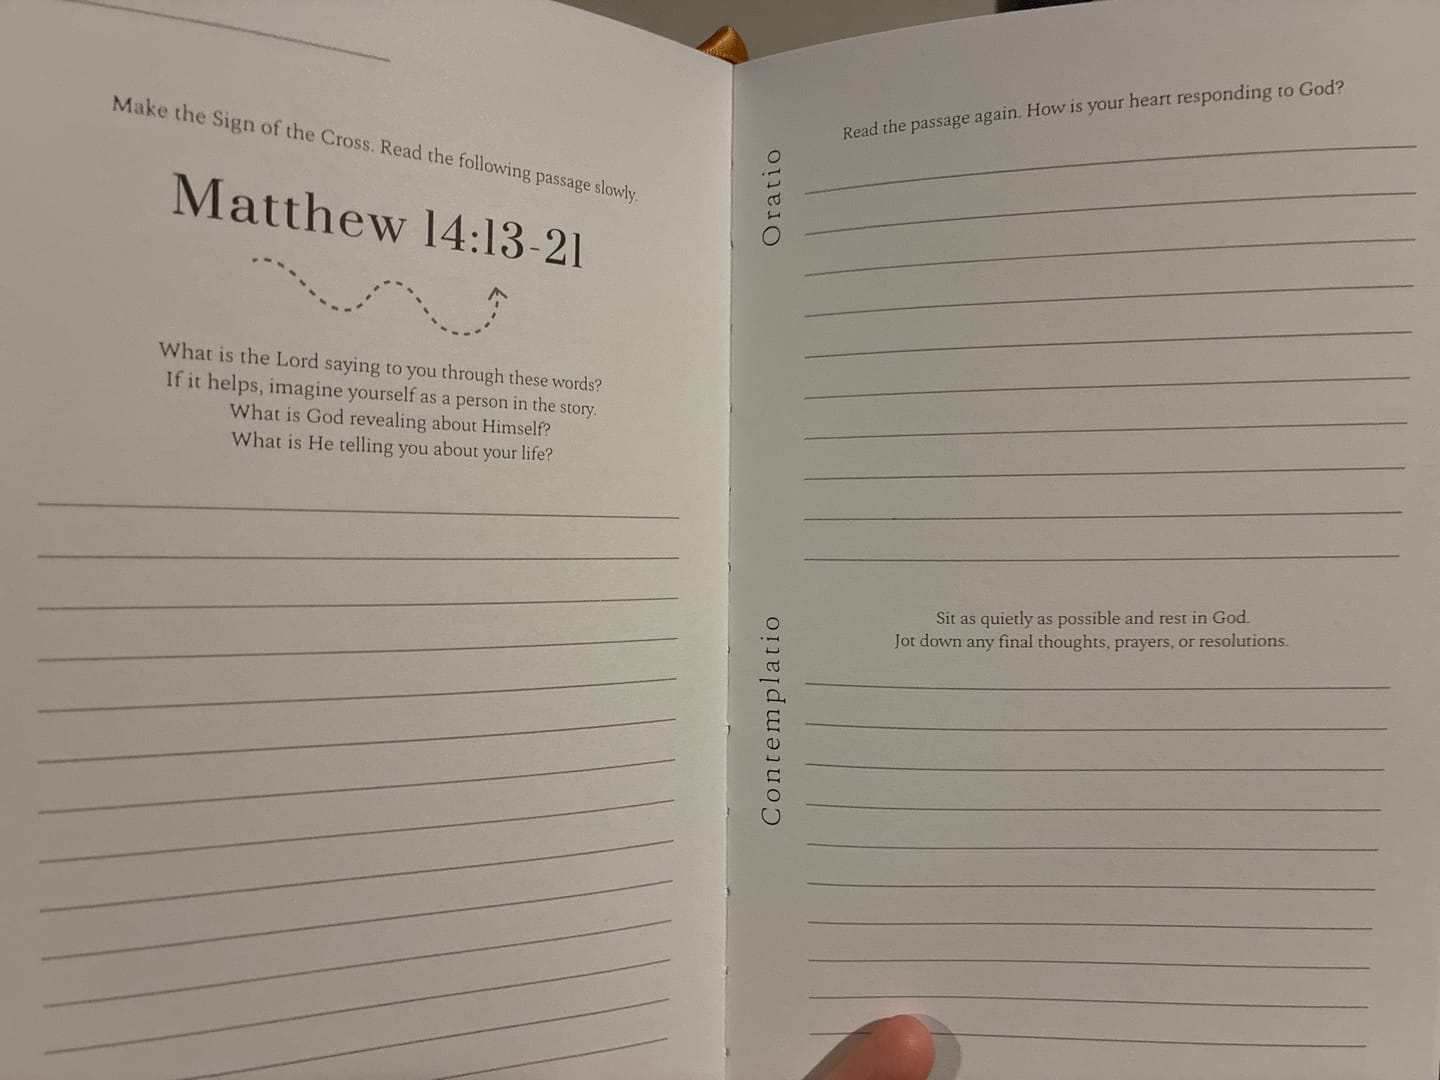 Make the Sign of the Cross. Read the following passage slowly.
Matthew 14:13-21
What is the Lord saying to you through these words?
If it helps, imagine yourself as a person in the story.
What is God revealing about Himself?
What is He telling you about your life?
Oratio
Read the passage again. How is your heart responding to God?
Contemplatio
Sit as quietly as possible and rest in God.
Jot down any final thoughts, prayers, or resolutions.